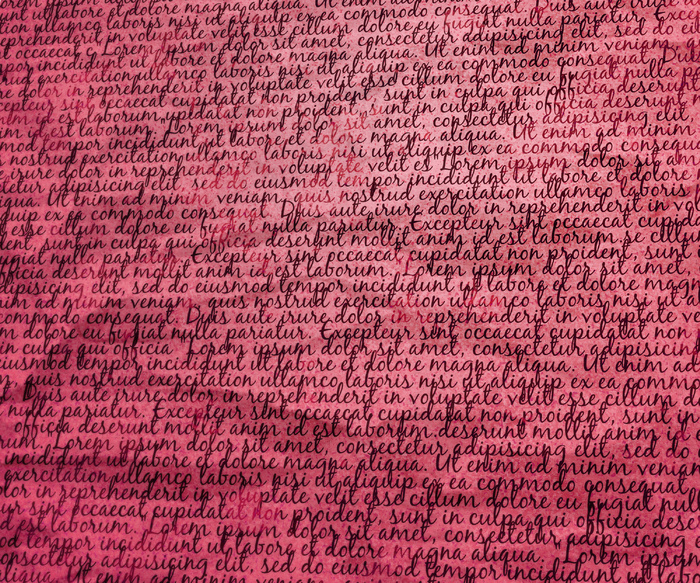 magna aliqua. Ut enim ad minim
ullamco laboris nisi ut aliquip ex ea commodo consequat. Duis
in voluptate velit esse cillum dolore eu fugiat nulla pariatur. Exce
occaecat c Lorem ipsum dolor sit amet, consectetur adipisicing elit, sed do
incididunt ut labore et dolore magna aliqua. Ut enim ad minim veniam
exercitation ullamco laboris nisi ut aliquip ex ea commodo consequat. D
reprehenderit in voluptate velit esse cillum dolore eu fugiat nulla
sint occaecat cupidatat non proident, sunt in culpa qui officia deserunt
id est laborum. Lorem ipsum dolor sit amet, consectetur adipisicing elit
tempor incididunt ut labore et dolore magna aliqua. Ut enim ad minim
nostrud exercitation ullamco laboris nisi ut aliquip ex ea commodo consequat
irure dolor in reprehenderit in voluptate velit es Lorem ipsum dolor sit
adipisicing elit, sed do eiusmod tempor incididunt ut labore et dolore
Ut enim ad minim veniam, quis nostrud exercitation ullamco laboris
ex ea commodo consequat. Duis aute irure dolor in reprehenderit in
esse cillum dolore eu fugiat nulla pariatur. Excepteur sint occaecat
sunt in culpa qui officia deserunt mollit anim id est laborum.se cillum
nulla pariatur. Excepteur sint occaecat cupidatat non proident, sunt
officia deserunt mollit anim id est laborum. Lorem ipsum dolor sit amet
adipisicing elit, sed do eiusmod tempor incididunt ut labore et dolore magn
ad minim veniam, quis nostrud exercitation ullamco laboris nisi ut
commodo consequat. Duis aute irure dolor in reprehenderit in voluptate
dolore eu fugiat nulla pariatur. Excepteur sint occaecat cupidatat non
in culpa qui officia Lorem ipsum dolor sit amet, consectetur adipisicing
tempor incididunt ut labore et dolore magna aliqua. Ut enim ad
quis nostrud exercitation ullamco laboris nisi ut aliquip ex ea comm
Duis aute irure dolor in reprehenderit in voluptate velit esse cillum
nulla pariatur. Excepteur sint occaecat cupidatat non proident, sunt in
officia deserunt mollit anim id est laborum.deserunt mollit anim id
Lorem ipsum dolor sit amet, consectetur adipisicing elit, sed do
incididunt ut labore et dolore magna aliqua. Ut enim ad minim venia
exercitation ullamco laboris nisi ut aliquip ex ea commodo consequat
in reprehenderit in voluptate velit esse cillum dolore eu fugiat
sint occaecat cupidatat non proident, sunt in culpa qui officia
est laborum. Lorem ipsum dolor sit amet, consectetur adipisicing elit
tempor incididunt ut labore et dolore magna aliqua. Lorem ipsum
adipisicing elit, sed do eiusmod tempor incididunt ut labore et
Ut enim ad minim veniam